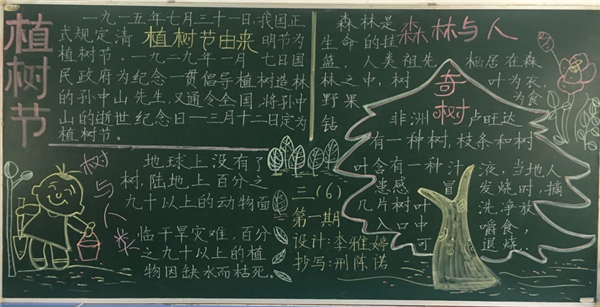 植树节
一九一五年七月三十一日,我国正
式规定清
植树节由来
明节为
植树节。一九二九年一月七日国
民政府为纪念一贯倡导植树造林
的孙中山先生,又通令全国,将孙中
山的逝世纪念日—三月十二日定为
植树节。
树与人类
地球上没有了
树,陆地上百分之
九十以上的动物面
临干旱灾难,百分
之九十以上的植
物因缺水而枯死。
三(6)
第一期
设计:李雅婷
抄写:刑陈诺
森林与人
森林是
生命的挂
篮,人类祖先栖居在森
林之中,树叶为衣,
野果为食
钻
奇树
非洲卢旺达
有一种树,枝条和树
叶含有一种汁液,当地人
患感冒发烧时,摘
几片树叶洗净放
入口中嚼食,
可退烧。